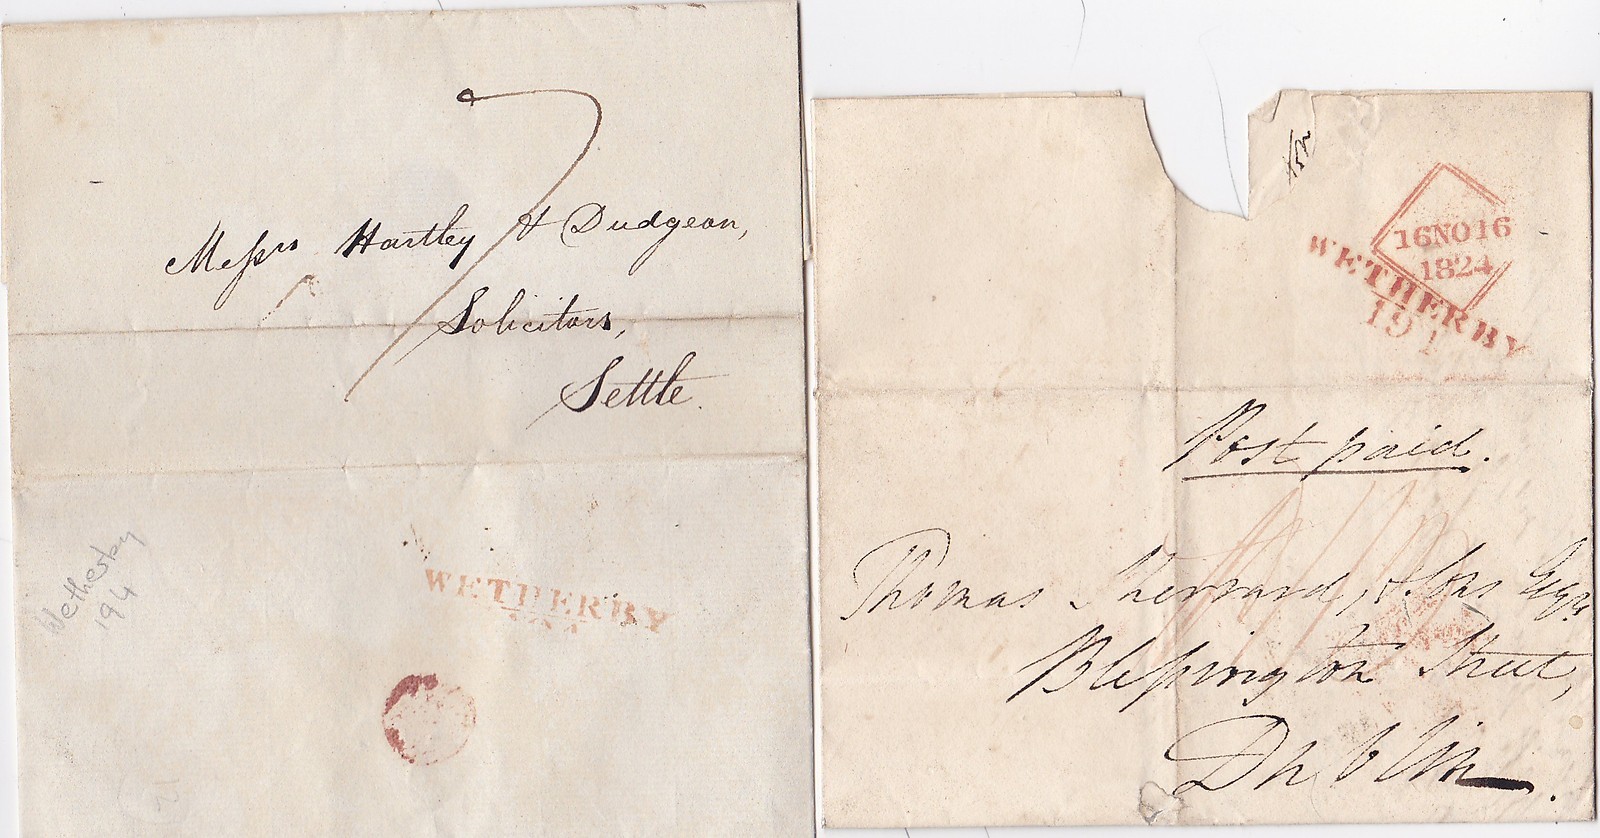 7
Messrs Hartley & Dudgeon,
Solicitors,
Settle.
Wetherby
194
WETHERBY
21
16NO16
1824
WETHERBY
191
Post paid.
Thomas Sherrard, & Sons Esqrs
Blessington Street,
Dublin.